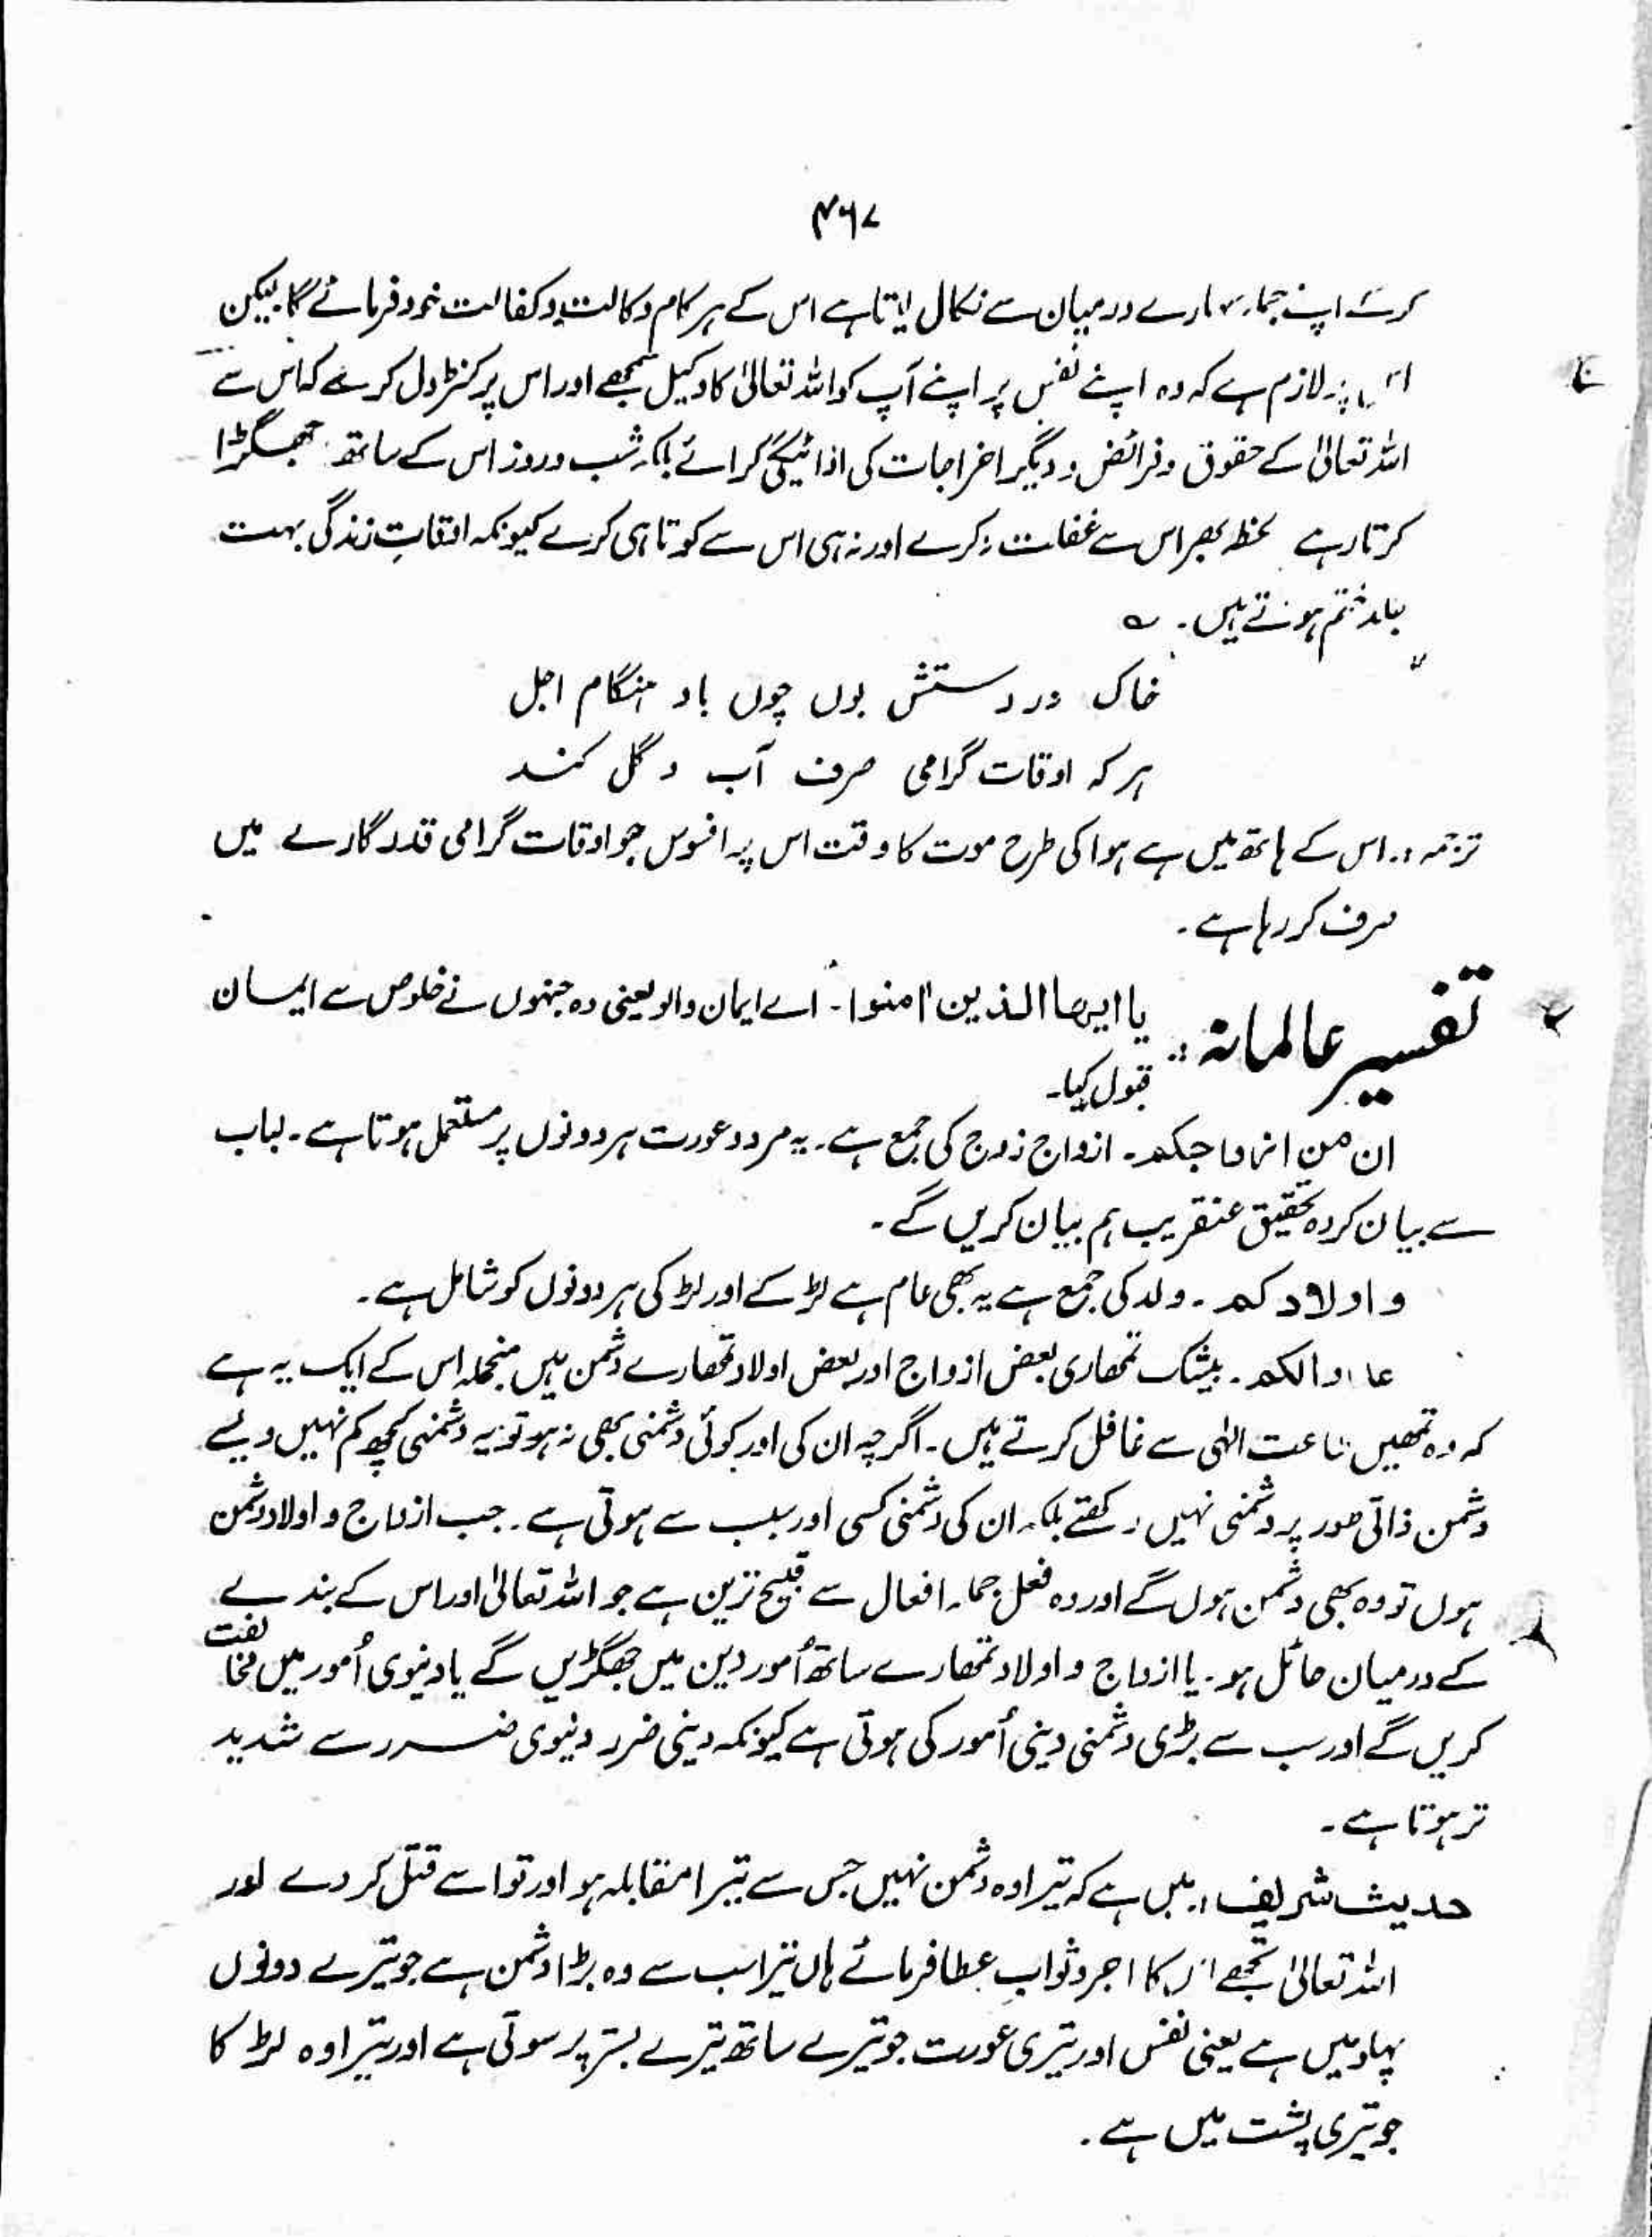 ۴۶۷
کر کے اپنے جملہ سہارے درمیان سے نکال لیتا ہے اس کے ہر کام وکالت و کفالت خود فرمائے گا۔ لیکن
اس پر لازم ہے کہ وہ اپنے نفس پر اپنے آپ کو اللہ تعالیٰ کا وکیل سمجھے اور اس پر کنٹرول کرے کہ اس سے
اللہ تعالیٰ کے حقوق و فرائض و دیگر اخراجات کی ادائیگی کرائے بلکہ شب و روز اس کے ساتھ جھگڑا
کرتا رہے لحظہ بھر اس سے غفلت نہ کرے اور نہ ہی اس سے کوتاہی کرے کیونکہ اوقاتِ زندگی بہت
جلد ختم ہوتے ہیں۔ ؎
خاک در دستش بوں چوں باد ہنگام اجل
ہر کہ اوقات گرامی صرف آب و گل کند
ترجمہ :۔ اس کے ہاتھ میں ہے ہوا کی طرح موت کا وقت اس پر افسوس جو اوقات گرامی قدر گارے میں
صرف کر رہا ہے۔
تفسیر عالمانہ :۔ یا ایھا الذین اٰمنوا۔ اے ایمان والو یعنی وہ جنہوں نے خلوص سے ایمان
قبول کیا۔
ان من ازواجکم۔ ازواج زوج کی جمع ہے۔ یہ مرد و عورت ہر دونوں پر مستعمل ہوتا ہے۔ لباب
سے بیان کردہ تحقیق عنقریب ہم بیان کریں گے۔
و اولادکم۔ ولد کی جمع ہے یہ بھی عام ہے لڑکے اور لڑکی ہر دونوں کو شامل ہے۔
عدوا لکم۔ بیشک تمھاری بعض ازواج اور بعض اولاد تمھارے دشمن ہیں منجملہ اس کے ایک یہ ہے
کہ وہ تمھیں طاعت الٰہی سے غافل کرتے ہیں۔ اگرچہ ان کی اور کوئی دشمنی بھی نہ ہو تو یہ دشمنی کچھ کم نہیں ویسے
دشمن ذاتی طور پر دشمنی نہیں رکھتے بلکہ ان کی دشمنی کسی اور سبب سے ہوتی ہے۔ جب ازواج و اولاد دشمن
ہوں تو وہ بھی دشمن ہوں گے اور وہ فعل جملہ افعال سے قبیح ترین ہے جو اللہ تعالیٰ اور اس کے بندے
کے درمیان حائل ہو۔ یا ازواج و اولاد تمھارے ساتھ اُمور دین میں جھگڑیں گے یا دنیوی اُمور میں مخالفت
کریں گے اور سب سے بڑی دشمنی دینی اُمور کی ہوتی ہے کیونکہ دینی ضرر دنیوی ضرر سے شدید
تر ہوتا ہے۔
حدیث شریف :۔ میں ہے کہ تیرا وہ دشمن نہیں جس سے تیرا مقابلہ ہو اور تو اسے قتل کر دے اور
اللہ تعالیٰ تجھے اس کا اجر و ثواب عطا فرمائے ہاں تیرا سب سے وہ بڑا دشمن ہے جو تیرے دونوں
پہلو میں ہے یعنی نفس اور تیری عورت جو تیرے ساتھ تیرے بستر پر سوتی ہے اور تیرا وہ لڑکا
جو تیری پشت میں ہے۔